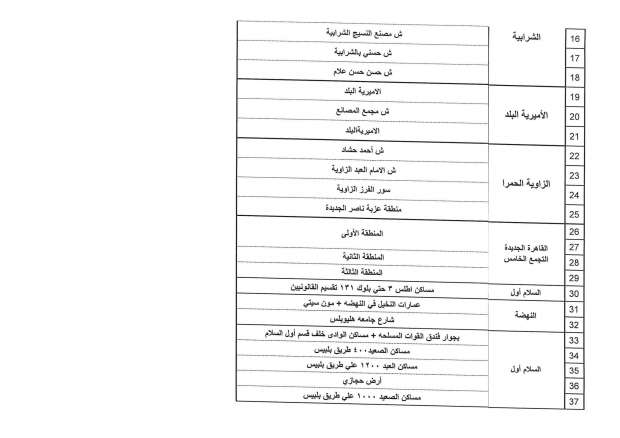 16 الشرابية ش مصنع النسيج الشرابية
17 ش حسني بالشرابية
18 ش حسن حسن علام
19 الاميرية البلد
20 الأميرية البلد ش مجمع المصانع
21 الاميريةالبلد
22 ش أحمد حشاد
23 الزاوية الحمرا ش الامام العبد الزاوية
24 سور الفرز الزاوية
25 منطقة عزبة ناصر الجديدة
26 المنطقة الأولى
27 القاهرة الجديدة
28 التجمع الخامس المنطقة الثانية
29 المنطقة الثالثة
30 السلام أول مساكن اطلس ٣ حتي بلوك ١٣١ تقسيم القانونيين
31 النهضة عمارات النخيل في النهضه + مون سيتي
32 شارع جامعه هليوبلس
33 بجوار فندق القوات المسلحه + مساكن الوادى خلف قسم أول السلام
34 مساكن الصعيد٤٠٠ طريق بلبيس
35 السلام أول مساكن العبد ١٢٠٠ علي طريق بلبيس
36 أرض حجازي
37 مساكن الصعيد ١٠٠٠ علي طريق بلبيس